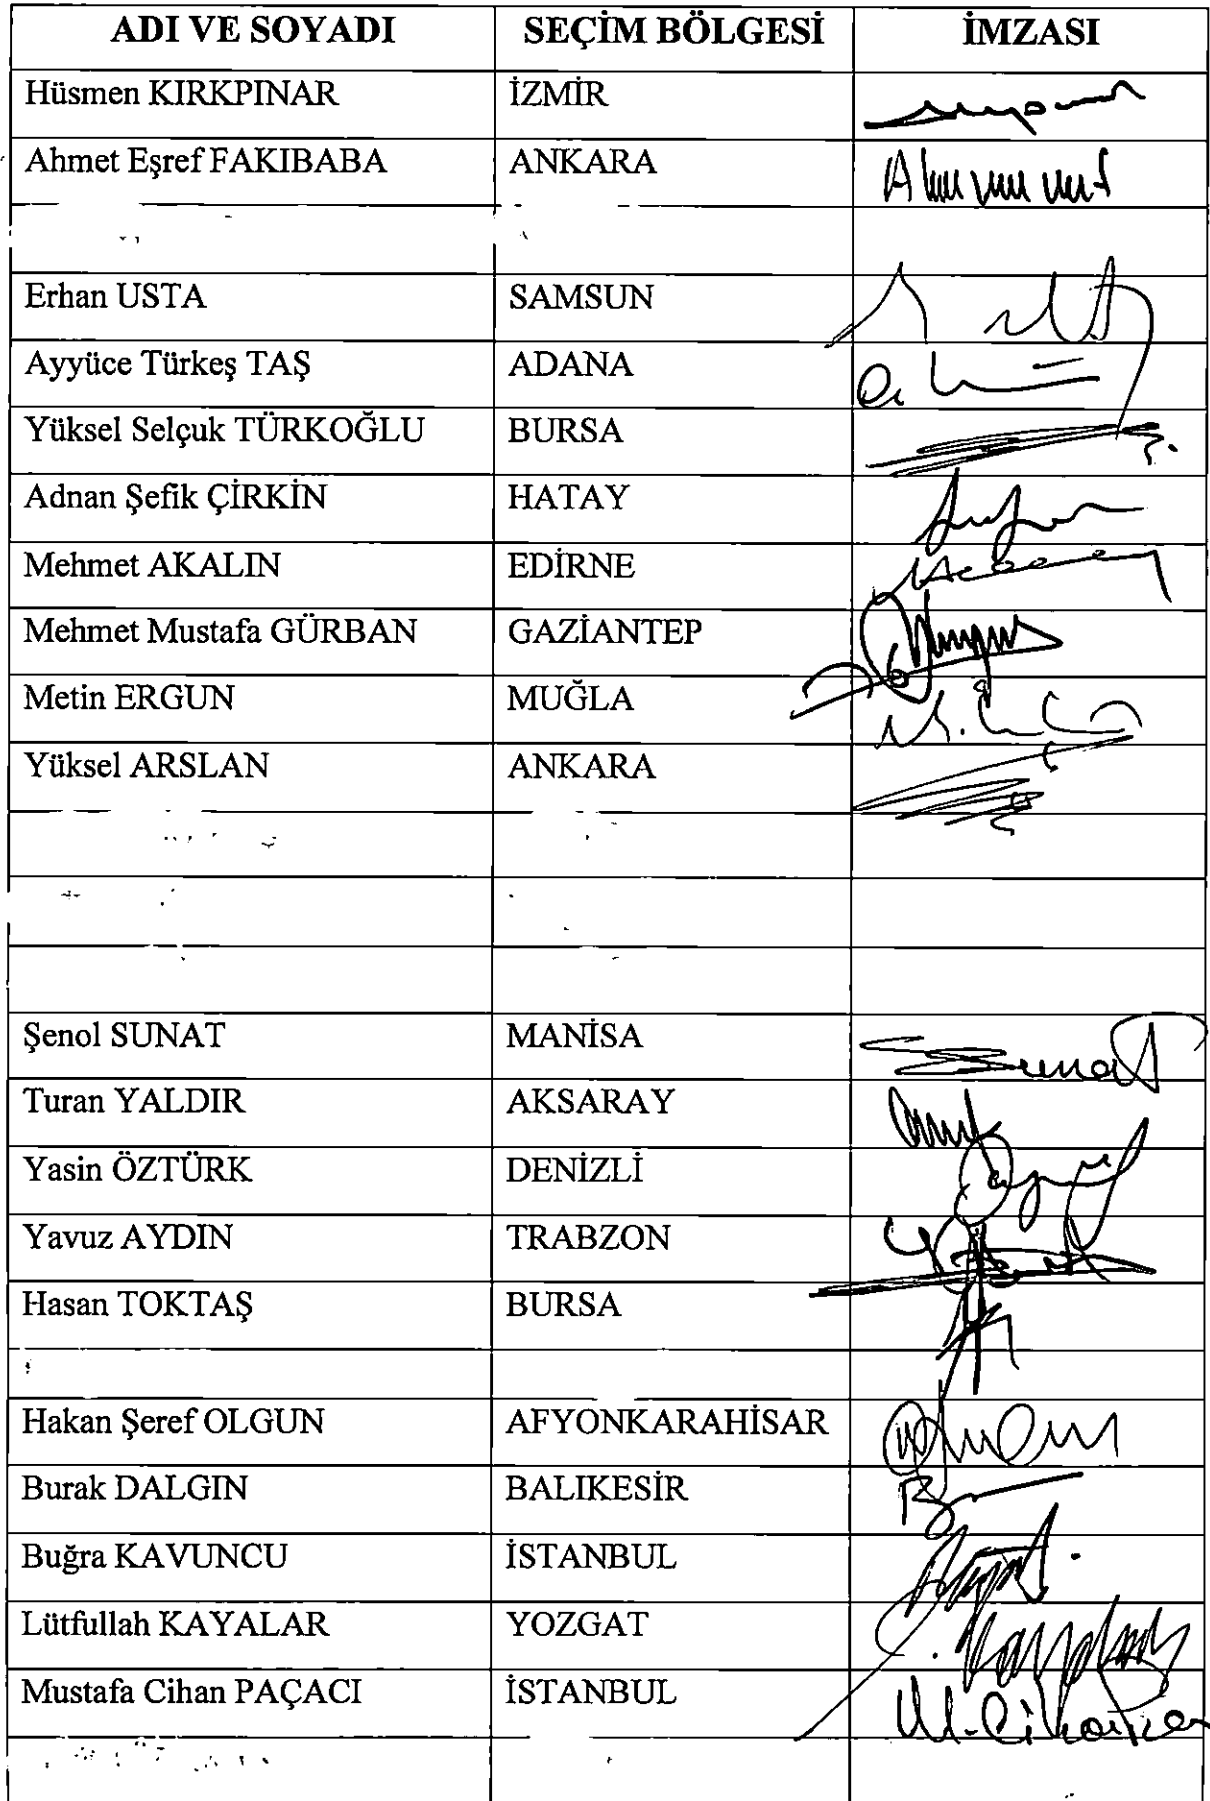 ADI VE SOYADI SEÇİM BÖLGESİ İMZASI
Hüsmen KIRKPINAR İZMİR
Ahmet Eşref FAKIBABA ANKARA
Erhan USTA SAMSUN
Ayyüce Türkeş TAŞ ADANA
Yüksel Selçuk TÜRKOĞLU BURSA
Adnan Şefik ÇİRKİN HATAY
Mehmet AKALIN EDİRNE
Mehmet Mustafa GÜRBAN GAZİANTEP
Metin ERGUN MUĞLA
Yüksel ARSLAN ANKARA
Şenol SUNAT MANİSA
Turan YALDIR AKSARAY
Yasin ÖZTÜRK DENİZLİ
Yavuz AYDIN TRABZON
Hasan TOKTAŞ BURSA
Hakan Şeref OLGUN AFYONKARAHİSAR
Burak DALGIN BALIKESİR
Buğra KAVUNCU İSTANBUL
Lütfullah KAYALAR YOZGAT
Mustafa Cihan PAÇACI İSTANBUL